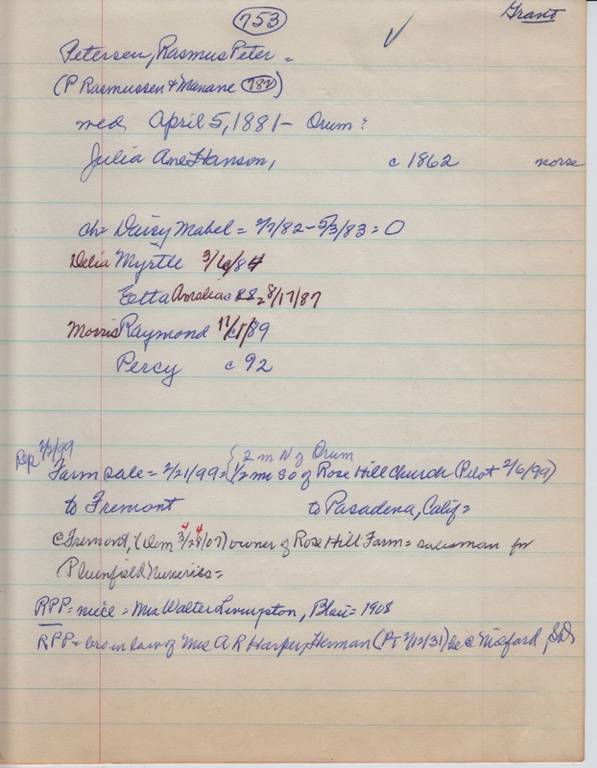 753
Grant
Petersen, Rasmus Peter =
(P Rasmussen & Manane 782)
wed. April 5, 1881 - Orum:
Julia Ane Hanson, c 1862 norse
ch = Daisy Mabel = 2/7/82 - 5/3/83 = 0
Delia Myrtle 3/6/84
Etta Amalia = 8/17/87
Morris Raymond 11/1/89
Percy c 92
Rep 2/2/99
{2 m N of Orum
Farm sale = 2/21/99 = {1/2 mi so of Rose Hill Church (Pilot 2/6/99)
to Fremont to Pasadena, Calif =
@ Fremont, (Dem 3/28/07) owner of Rose Hill Farm = salesman for
Plumfield Nurseries =
RPP = niece = Mrs Walter Livingston, Blair = 1908
RPP = bro in law of Mrs A R Harper, Herman (PT 2/12/31) he @ Midford, SD